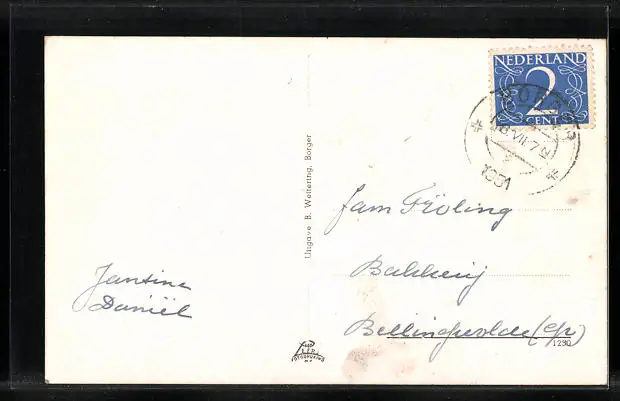 NEDERLAND
2
CENT
1951
Uitgave B. Weitering, Borger
fam Fröling
Bakkerij
Bellingwolde (Gr)
Jantina
Daniël
1290